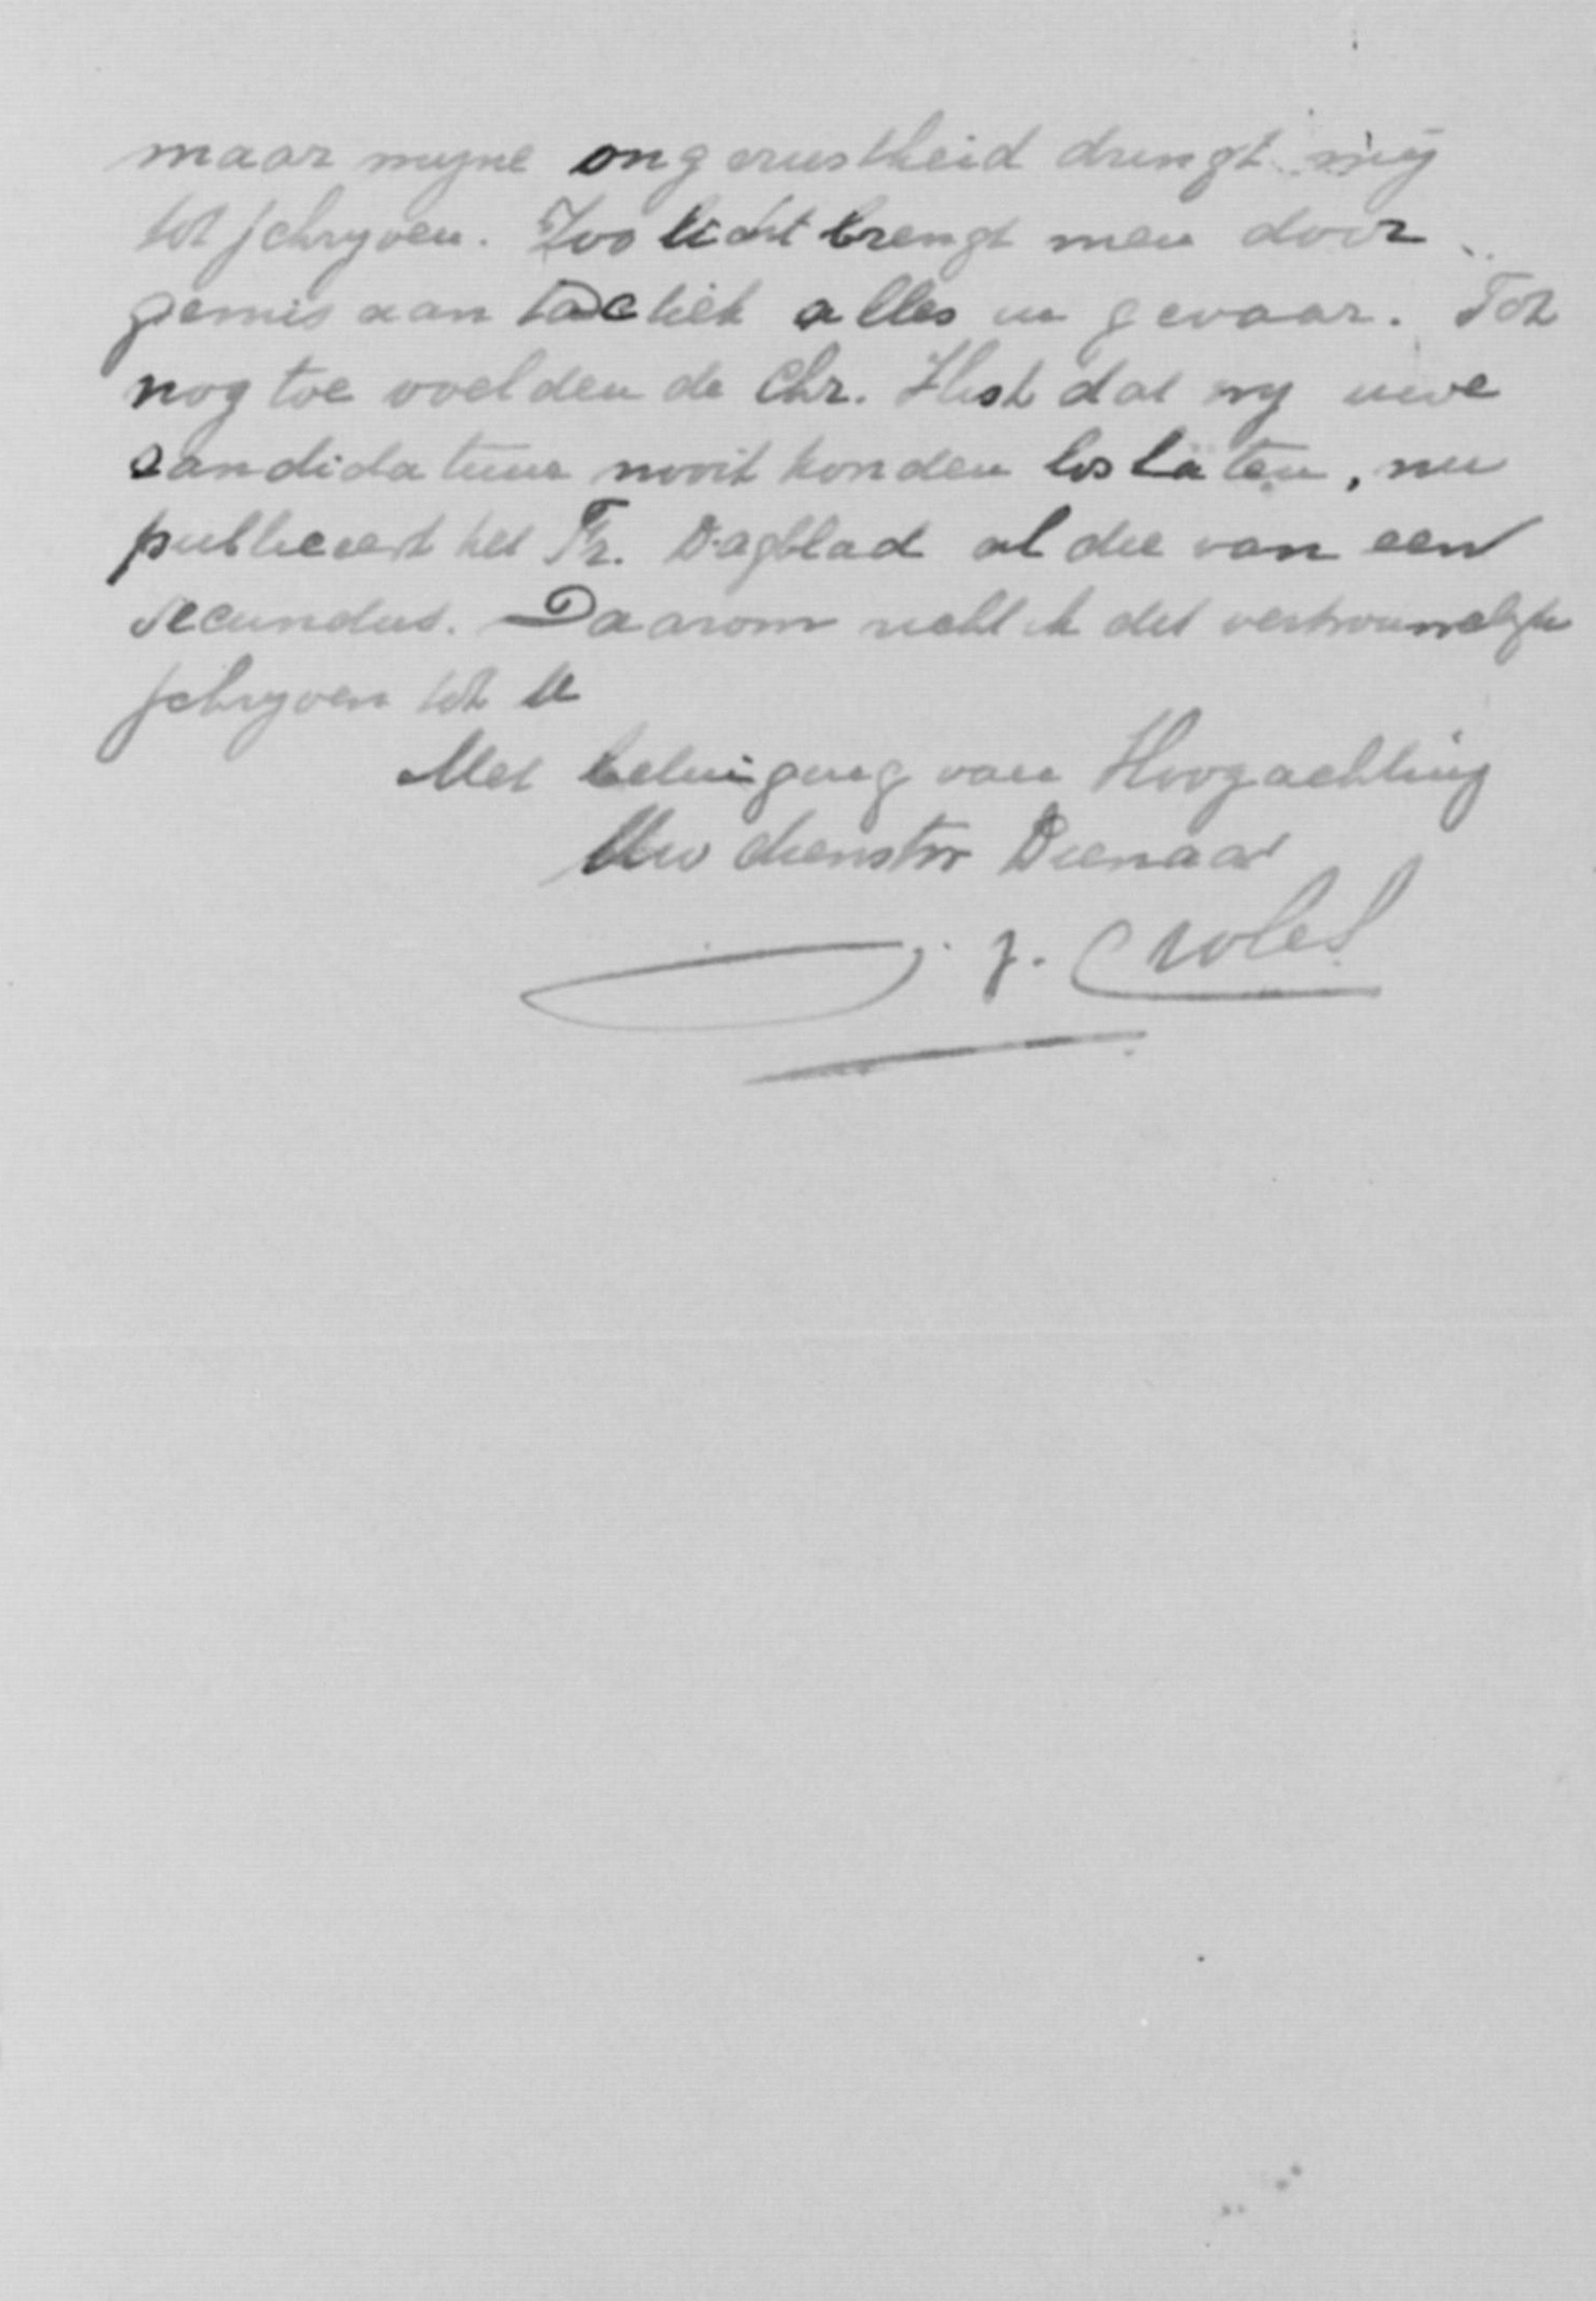 maar myne ongerustheid dringt mij
tot schryven. Zoo licht brengt men door
gemis aan tactiek alles in gevaar. Tot
nog toe voelden de Chr. Hist dat wy uwe
candidatuur nooit konden loslaten, nu
publiceert het Fr. Dagblad al die van een
secundus. Daarom richt ik dit vertrouwelyk
schryven tot U
Met betuiging van Hoogachting
Uw dienstw Dienaar
J. Crolet